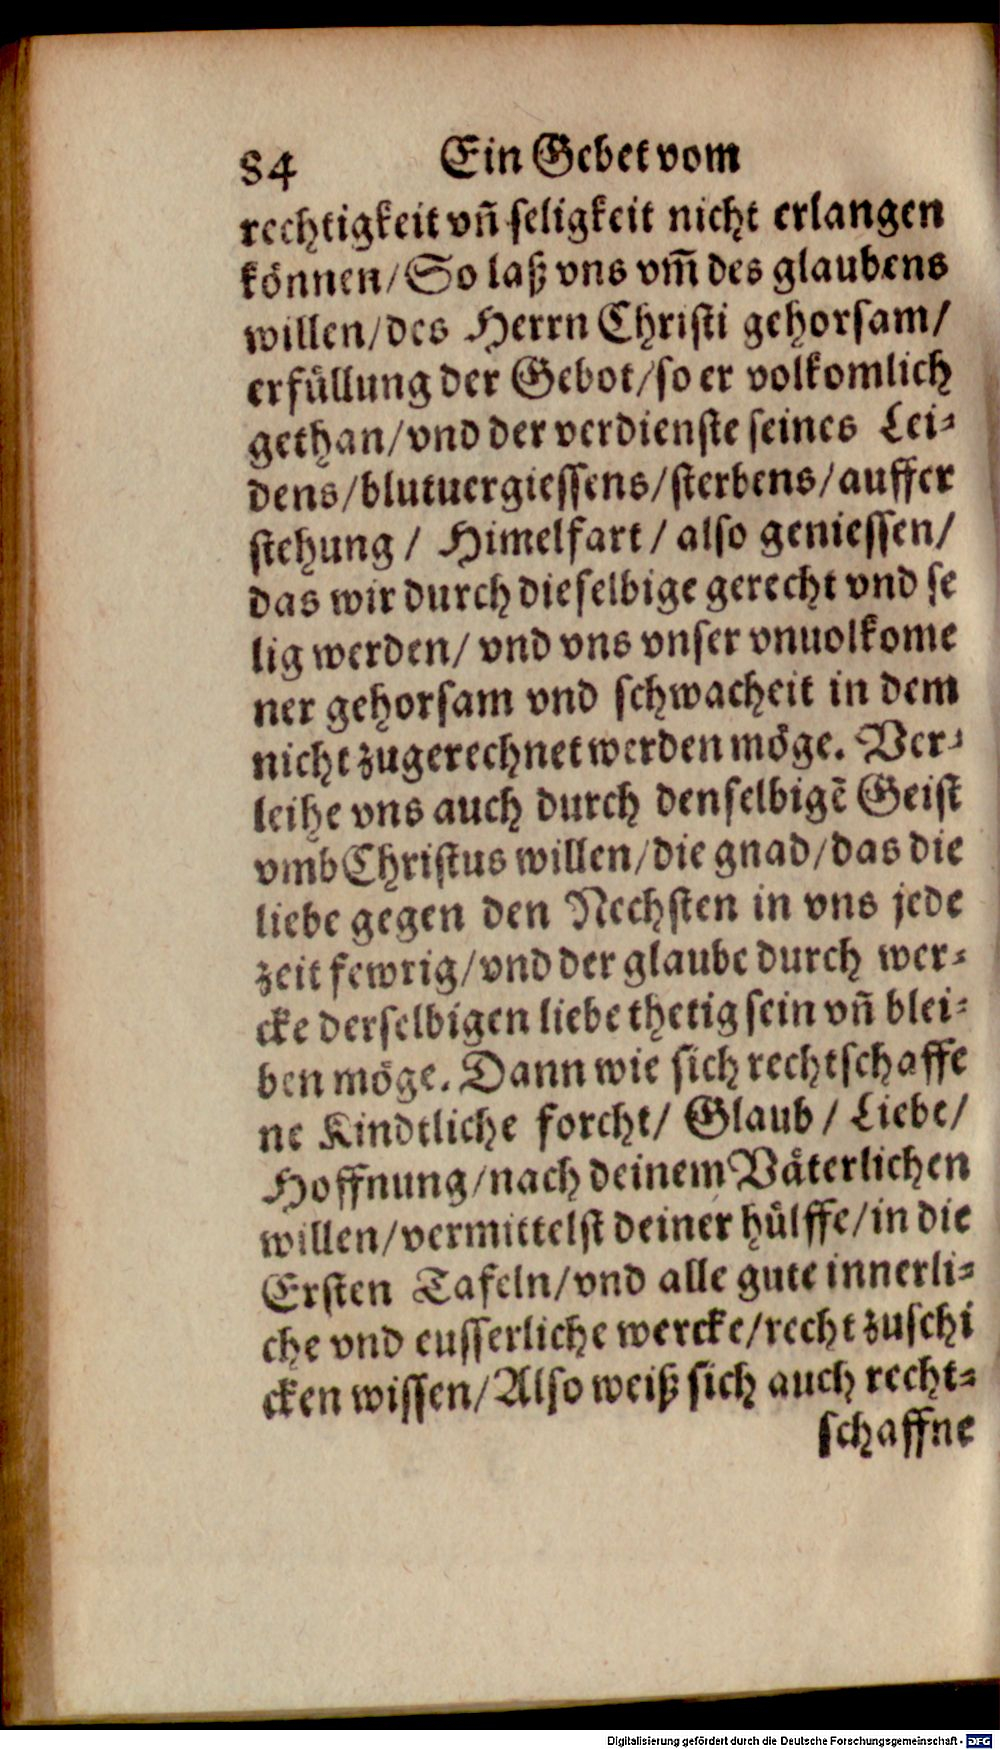 84 Ein Gebet vom
rechtigkeit vn̄ seligkeit nicht erlangen
können/So laß vns vm̄ des glaubens
willen/des Herrn Christi gehorsam/
erfüllung der Gebot/so er volkomlich
gethan/vnd der verdienste seines Lei⸗
dens/blutuergiessens/sterbens/auffer
stehung / Himelfart / also geniessen/
das wir durch dieselbige gerecht vnd se
lig werden/ vnd vns vnser vnuolkome
ner gehorsam vnd schwacheit in dem
nicht zugerechnet werden möge. Ver⸗
leihe vns auch durch denselbigē Geist
vmb Christus willen/die gnad/das die
liebe gegen den Nechsten in vns jede
zeit fewrig/vnd der glaube durch wer⸗
cke derselbigen liebe thetig sein vn̄ blei⸗
ben möge. Dann wie sich rechtschaffe
ne Kindtliche forcht/ Glaub / Liebe/
Hoffnung/nach deinem Väterlichen
willen/vermittelst deiner hülffe/in die
Ersten Tafeln/vnd alle gute innerli⸗
che vnd eusserliche wercke/recht zuschi
cken wissen/Also weiß sich auch recht⸗
schaffne
Digitalisierung gefördert durch die Deutsche Forschungsgemeinschaft - DFG